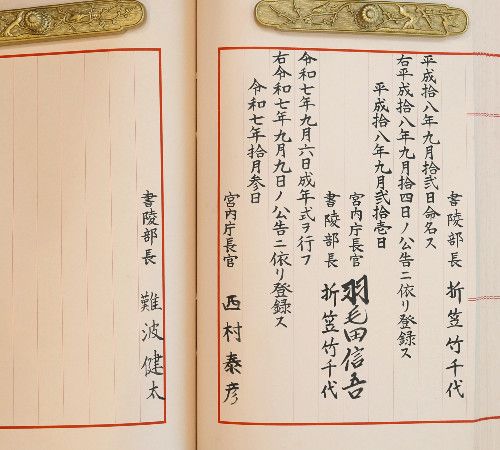 書陵部長 折笠竹千代
平成拾八年九月拾弐日命名ス
右平成拾八年九月拾四日ノ公告ニ依リ登録ス
平成拾八年九月弐拾壱日
宮内庁長官 羽毛田信吾
書陵部長 折笠竹千代
令和七年九月六日成年式ヲ行フ
右令和七年九月九日ノ公告ニ依リ登録ス
令和七年拾月参日
宮内庁長官 西村泰彦
書陵部長 難波健太